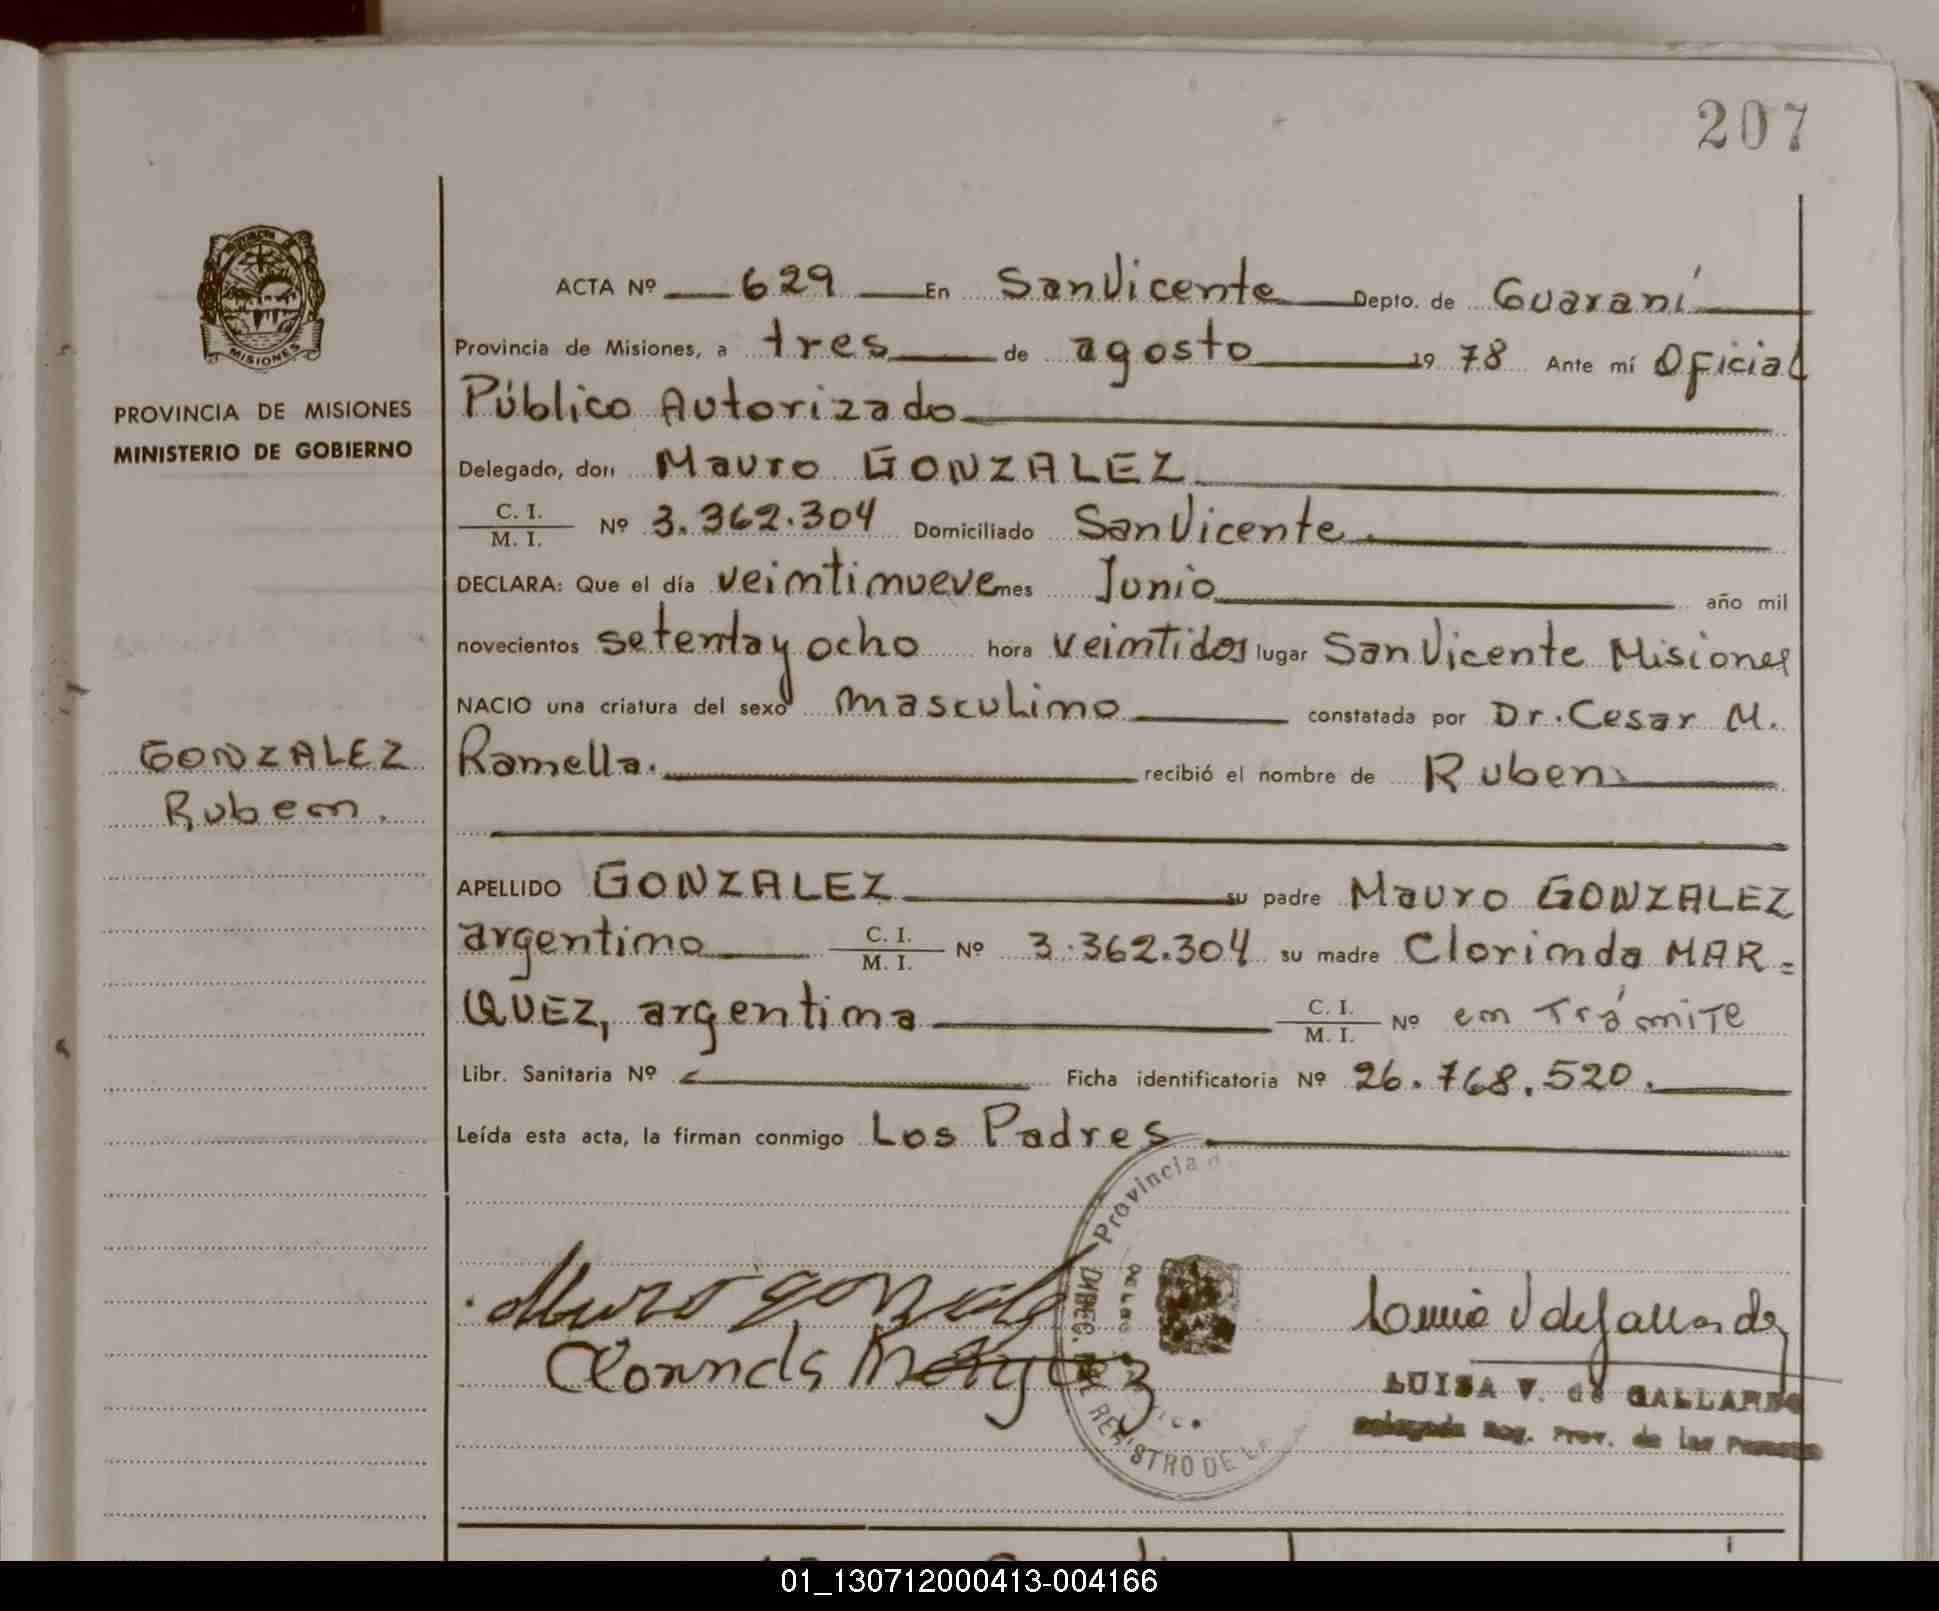 207
MISIONES
PROVINCIA DE MISIONES
MINISTERIO DE GOBIERNO
GONZALEZ
Ruben.
ACTA Nº 629 En San Vicente Depto. de Guaraní
Provincia de Misiones, a tres de agosto 19 78 Ante mí Oficial
Público Autorizado
Delegado, don Mauro GONZALEZ
C. I.
M. I. Nº 3.362.304 Domiciliado San Vicente.
DECLARA: Que el día veintinueve mes Junio año mil
novecientos setenta y ocho hora veintidos lugar San Vicente Misiones
NACIO una criatura del sexo masculino constatada por Dr. Cesar M.
Ramella. recibió el nombre de Ruben
APELLIDO GONZALEZ su padre Mauro GONZALEZ
argentino C. I. / M. I. Nº 3.362.304 su madre Clorinda MAR=
QUEZ, argentina C. I. / M. I. Nº en Trámite
Libr. Sanitaria Nº Ficha identificatoria Nº 26.768.520.
Leída esta acta, la firman conmigo Los Padres
Provincia
DIREC. REGISTRO DE
Mauro Gonzalez
Clorinda Marquez
LUISA V. de GALLARDO
Delegada Reg. Prov. de las Personas
01_130712000413-004166